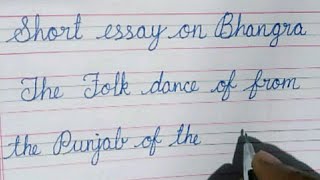 Short essay on Bhangra
The Folk dance of from
the Punjab of the